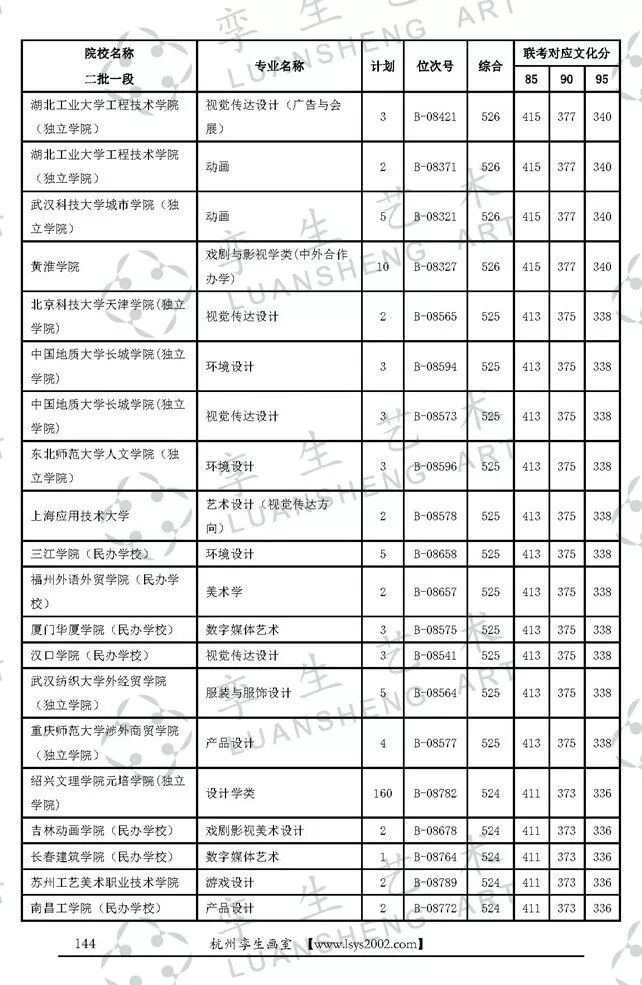 院校名称 二批一段 专业名称 计划 位次号 综合 联考对应文化分
85 90 95
湖北工业大学工程技术学院（独立学院） 视觉传达设计（广告与会展） 3 B-08421 526 415 377 340
湖北工业大学工程技术学院（独立学院） 动画 2 B-08371 526 415 377 340
武汉科技大学城市学院（独立学院） 动画 5 B-08321 526 415 377 340
黄淮学院 戏剧与影视学类(中外合作办学) 10 B-08327 526 415 377 340
北京科技大学天津学院(独立学院) 视觉传达设计 2 B-08565 525 413 375 338
中国地质大学长城学院(独立学院) 环境设计 3 B-08594 525 413 375 338
中国地质大学长城学院(独立学院) 视觉传达设计 3 B-08573 525 413 375 338
东北师范大学人文学院（独立学院） 环境设计 3 B-08596 525 413 375 338
上海应用技术大学 艺术设计（视觉传达方向） 2 B-08578 525 413 375 338
三江学院（民办学校） 环境设计 5 B-08658 525 413 375 338
福州外语外贸学院（民办学校） 美术学 2 B-08657 525 413 375 338
厦门华厦学院（民办学校） 数字媒体艺术 3 B-08575 525 413 375 338
汉口学院（民办学校） 视觉传达设计 3 B-08541 525 413 375 338
武汉纺织大学外经贸学院（独立学院） 服装与服饰设计 5 B-08564 525 413 375 338
重庆师范大学涉外商贸学院（独立学院） 产品设计 4 B-08577 525 413 375 338
绍兴文理学院元培学院(独立学院) 设计学类 160 B-08782 524 411 373 336
吉林动画学院（民办学校） 戏剧影视美术设计 2 B-08678 524 411 373 336
长春建筑学院（民办学校） 数字媒体艺术 1 B-08764 524 411 373 336
苏州工艺美术职业技术学院 游戏设计 2 B-08789 524 411 373 336
南昌工学院（民办学校） 产品设计 2 B-08772 524 411 373 336
144 杭州孪生画室 【www.lsys2002.com】
孪生艺术
LUANSHENG ART